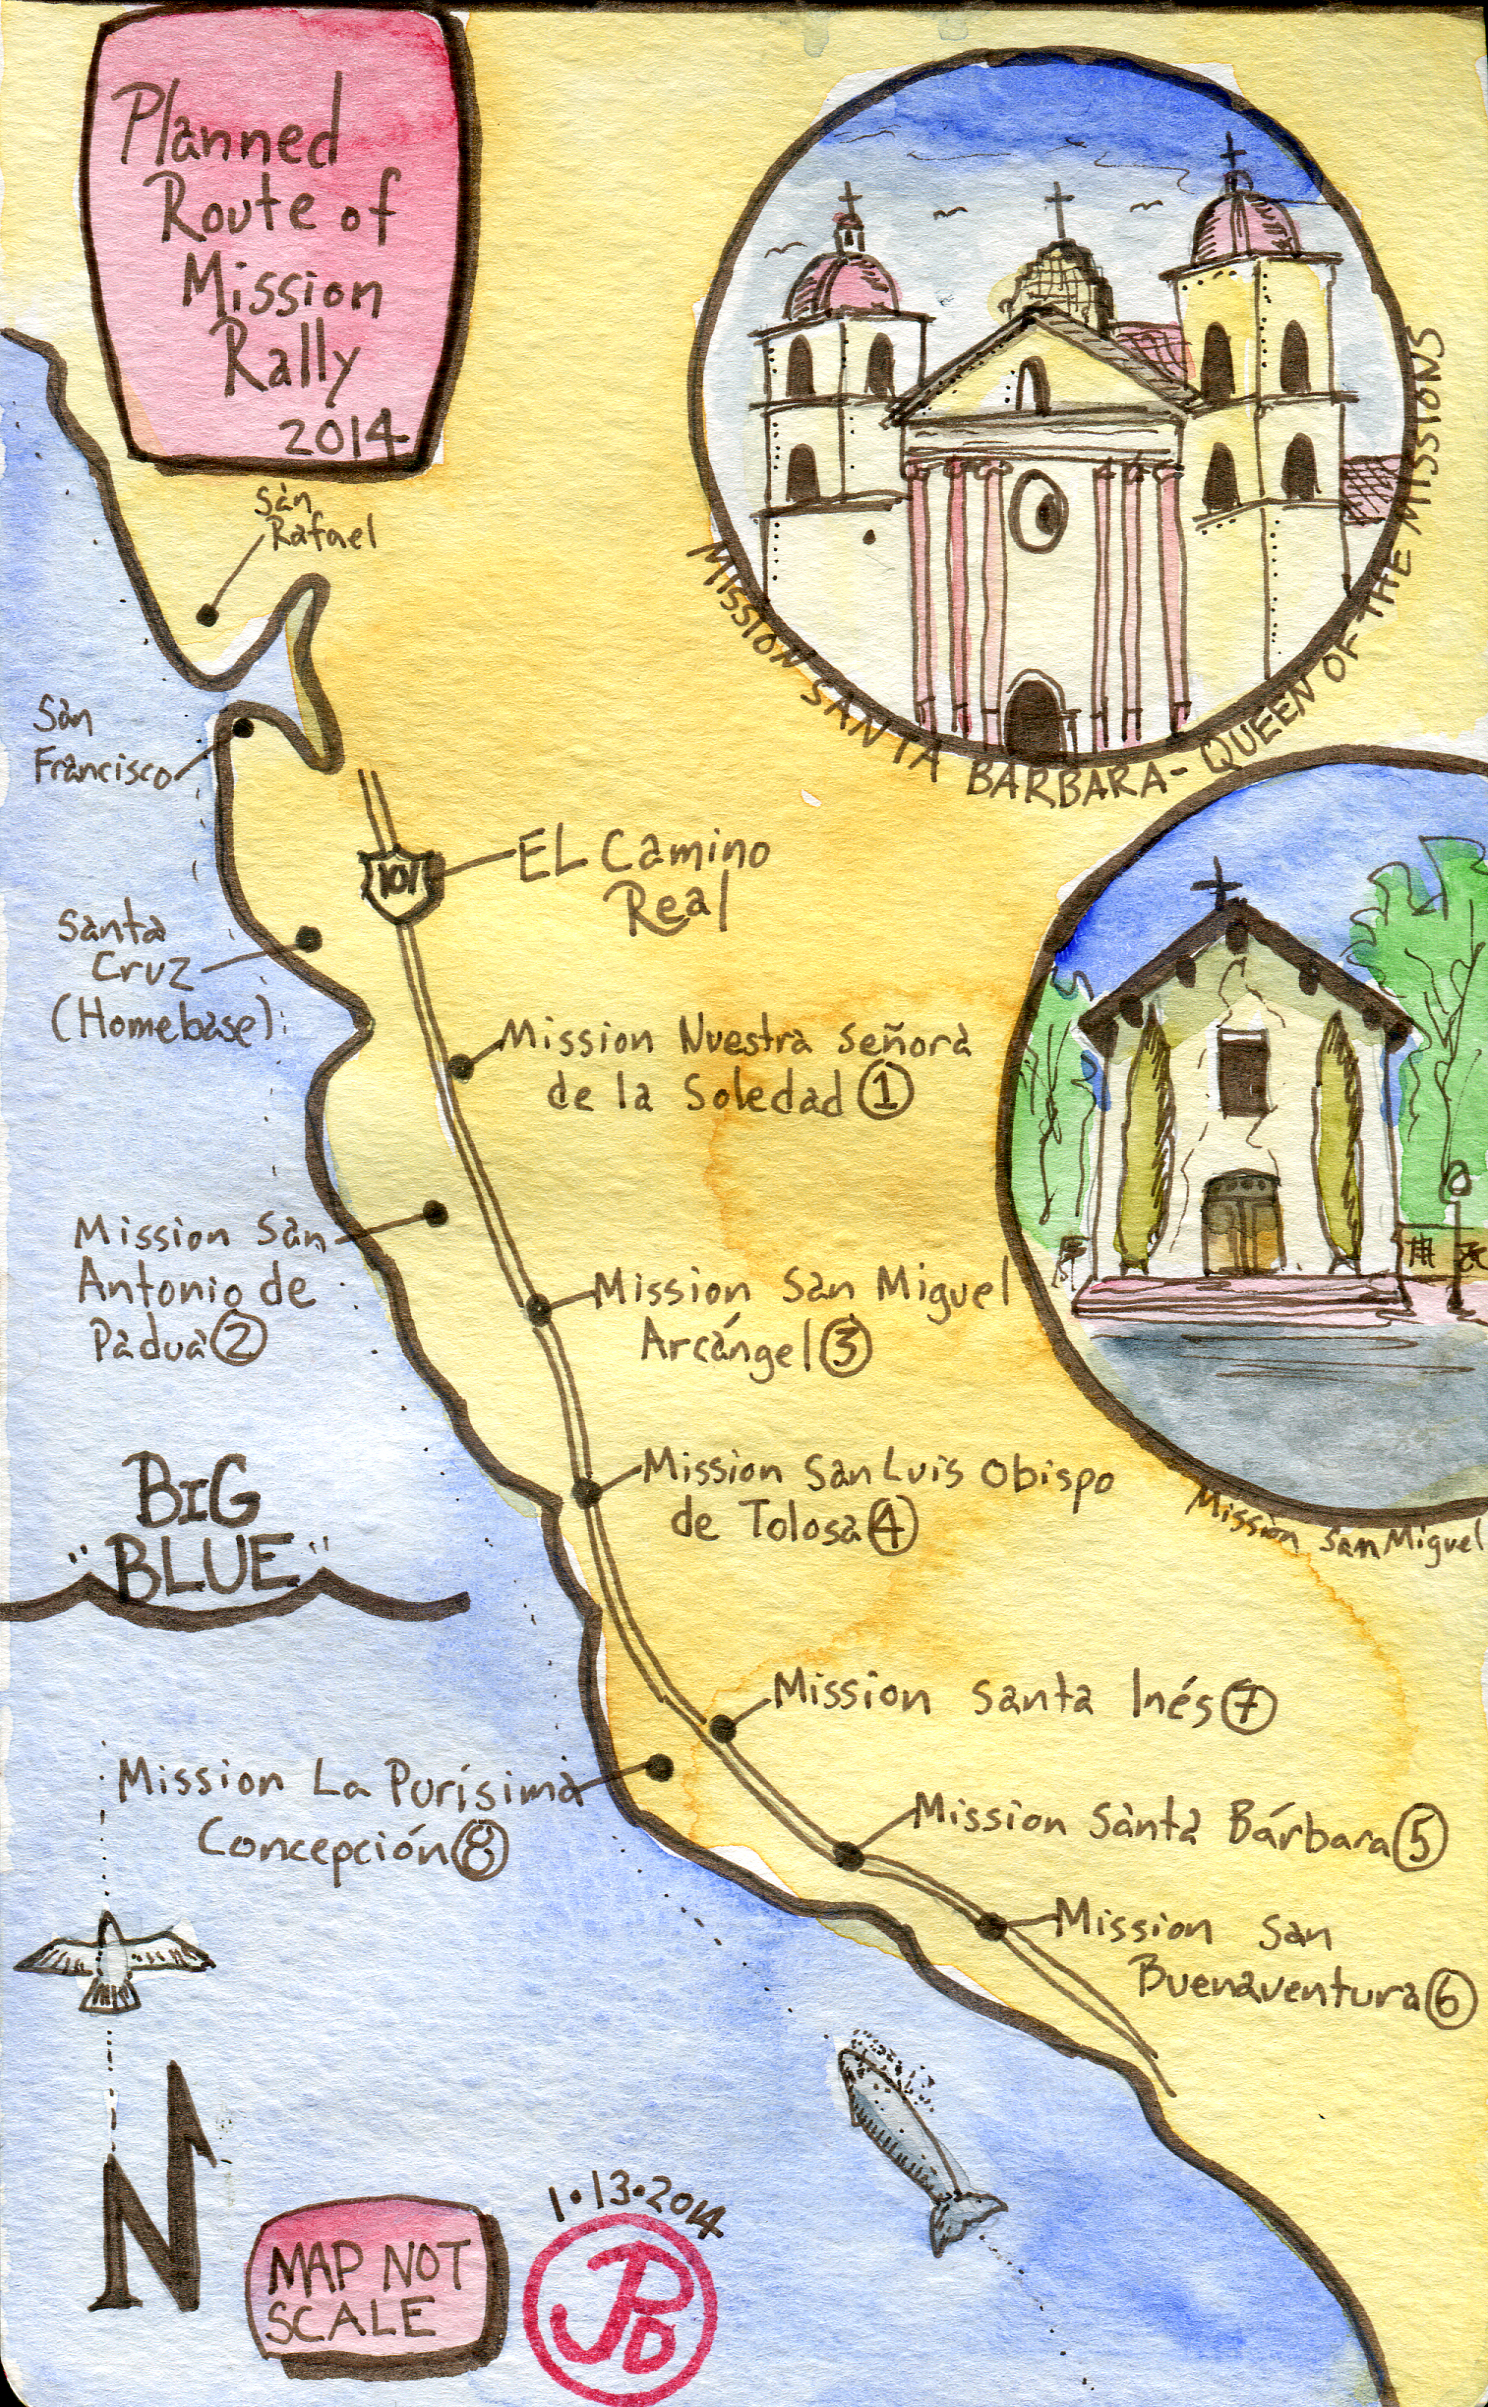 Planned
Route of
Mission
Rally
2014
San
Rafael
San
Francisco
101
EL Camino
Real
Santa
Cruz
(Homebase)
Mission Nuestra Señora
de la Soledad 1
Mission San
Antonio de
Padua 2
Mission San Miguel
Arcángel 3
Mission San Luis Obispo
de Tolosa 4
"BIG
BLUE"
Mission Santa Inés 7
Mission La Purísima
Concepción 8
Mission Santa Bárbara 5
Mission San
Buenaventura 6
MISSION SANTA BARBARA - QUEEN OF THE MISSIONS
Mission San Miguel
N
MAP NOT
SCALE
1·13·2014
JPD